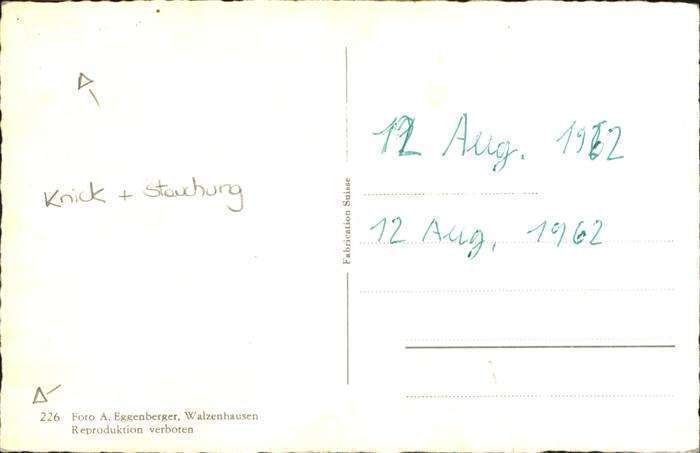 Knick + Stauchung
226 Foto A. Eggenberger, Walzenhausen
Reproduktion verboten
Fabrication Suisse
12 Aug. 1962
12 Aug. 1962